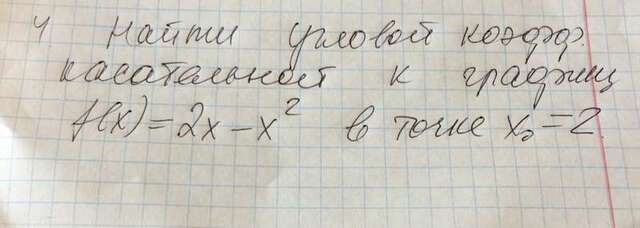 4 Найти угловой коэфф.
касательной к графику
f(x) = 2x - x² в точке x₀ = 2.